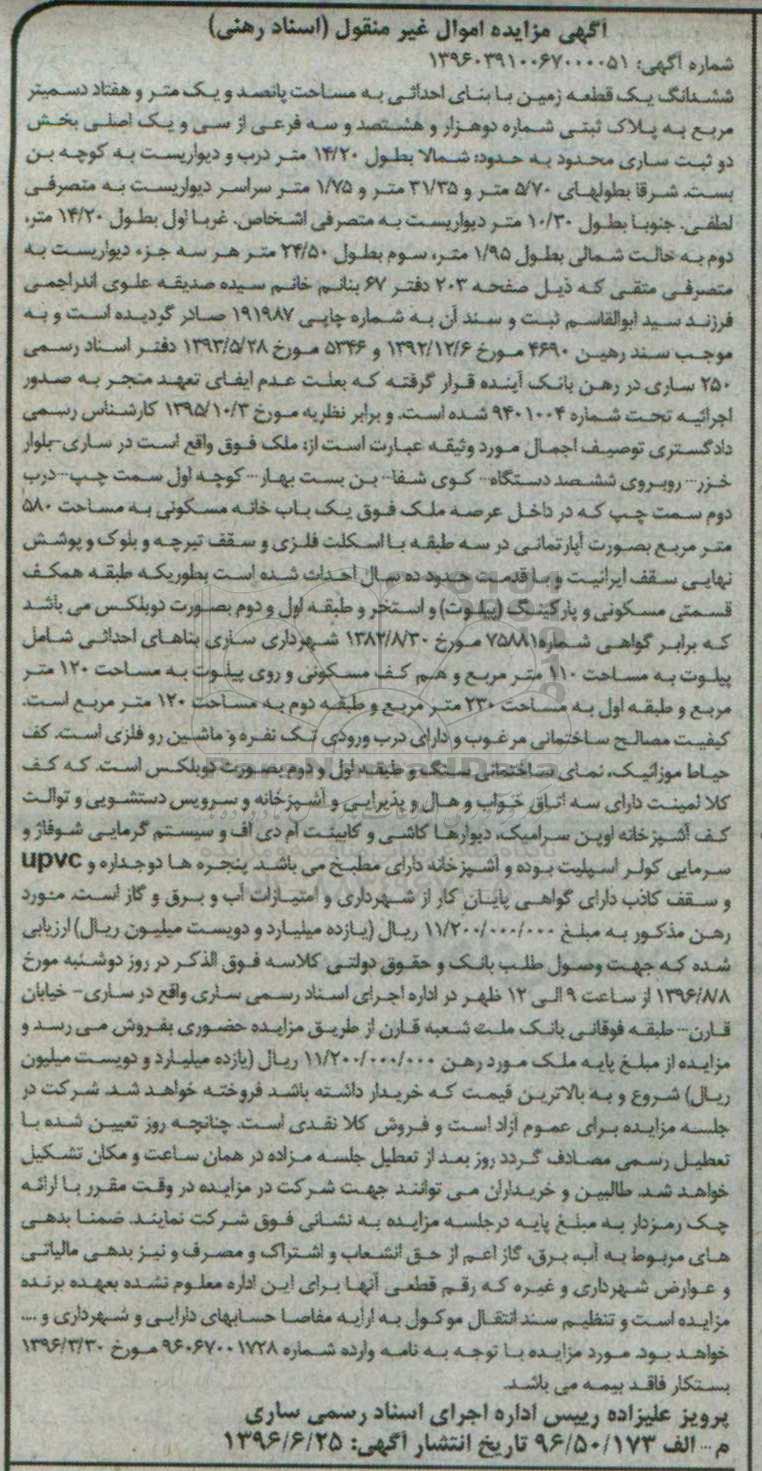 آگهی مزایده اموال غیر منقول (اسناد رهنی)
شماره آگهی: ۱۳۹۶۰۳۹۱۰۰۶۷۰۰۰۰۵۱
ششدانگ یک قطعه زمین با بنای احداثی به مساحت پانصد و یک متر و هفتاد دسمیتر
مربع به پلاک ثبتی شماره دوهزار و هشتصد و سه فرعی از سی و یک اصلی بخش
دو ثبت ساری محدود به حدود: شمالا بطول ۱۴/۲۰ متر درب و دیواریست به کوچه بن
بست. شرقا بطولهای ۵/۷۰ متر و ۳۱/۳۵ متر و ۱/۷۵ متر سراسر دیواریست به متصرفی
لطفی. جنوبا بطول ۱۰/۳۰ متر دیواریست به متصرفی اشخاص. غربا اول بطول ۱۴/۲۰ متر،
دوم به حالت شمالی بطول ۱/۹۵ متر، سوم بطول ۲۴/۵۰ متر هر سه جزء دیواریست به
متصرفی متقی که ذیل صفحه ۲۰۳ دفتر ۶۷ بنانم خانم سیده صدیقه علوی اندراجمی
فرزند سید ابوالقاسم ثبت و سند آن به شماره چاپی ۱۹۱۹۸۷ صادر گردیده است و به
موجب سند رهین ۴۶۹۰ مورخ ۱۳۹۲/۱۲/۶ و ۵۳۴۶ مورخ ۱۳۹۳/۵/۲۸ دفتر اسناد رسمی
۲۵۰ ساری در رهن بانک آینده قرار گرفته که بعلت عدم ایفای تعهد منجر به صدور
اجرائیه تحت شماره ۹۴۰۱۰۰۴ شده است. و برابر نظریه مورخ ۱۳۹۵/۱۰/۳ کارشناس رسمی
دادگستری توصیف اجمال مورد وثیقه عبارت است از: ملک فوق واقع است در ساری-بلوار
خزر-- روبروی ششصد دستگاه-- کوی شفا-- بن بست بهار-- کوچه اول سمت چپ--درب
دوم سمت چپ که در داخل عرصه ملک فوق یک باب خانه مسکونی به مساحت ۵۸۰
متر مربع بصورت آپارتمانی در سه طبقه با اسکلت فلزی و سقف تیرچه و بلوک و پوشش
نهایی سقف ایرانیت و با قدمت حدود ده سال احداث شده است بطوریکه طبقه همکف
قسمتی مسکونی و پارکینگ (پیلوت) و استخر و طبقه اول و دوم بصورت دوبلکس می باشد
که برابر گواهی شماره۷۵۸۸۱ مورخ ۱۳۸۲/۸/۳۰ شهرداری ساری بناهای احداثی شامل
پیلوت به مساحت ۱۱۰ متر مربع و هم کف مسکونی و روی پیلوت به مساحت ۱۲۰ متر
مربع و طبقه اول به مساحت ۲۳۰ متر مربع و طبقه دوم به مساحت ۱۲۰ متر مربع است.
کیفیت مصالح ساختمانی مرغوب و دارای درب ورودی تک نفره و ماشین رو فلزی است. کف
حیاط موزائیک، نمای ساختمانی سنگ و طبقه اول و دوم بصورت دوبلکس است. که کف
کلا لمینت دارای سه اتاق خواب و هال و پذیرایی و آشپزخانه و سرویس دستشویی و توالت
کف آشپزخانه اوپن سرامیک، دیوارها کاشی و کابینت ام دی اف و سیستم گرمایی شوفاژ و
سرمایی کولر اسپلیت بوده و آشپزخانه دارای مطبخ می باشد. پنجره ها دوجداره و upvc
و سقف کاذب دارای گواهی پایان کار از شهرداری و امتیازات آب و برق و گاز است. مورد
رهن مذکور به مبلغ ۱۱/۲۰۰/۰۰۰/۰۰۰ ریال (یازده میلیارد و دویست میلیون ریال) ارزیابی
شده که جهت وصول طلب بانک و حقوق دولتی کلاسه فوق الذکر در روز دوشنبه مورخ
۱۳۹۶/۸/۸ از ساعت ۹ الی ۱۲ ظهر در اداره اجرای اسناد رسمی ساری واقع در ساری- خیابان
قارن-- طبقه فوقانی بانک ملت شعبه قارن از طریق مزایده حضوری بفروش می رسد و
مزایده از مبلغ پایه ملک مورد رهن ۱۱/۲۰۰/۰۰۰/۰۰۰ ریال (یازده میلیارد و دویست میلیون
ریال) شروع و به بالاترین قیمت که خریدار داشته باشد فروخته خواهد شد. شرکت در
جلسه مزایده برای عموم آزاد است و فروش کلا نقدی است. چنانچه روز تعیین شده با
تعطیل رسمی مصادف گردد روز بعد از تعطیل جلسه مزاده در همان ساعت و مکان تشکیل
خواهد شد. طالبین و خریداران می توانند جهت شرکت در مزایده در وقت مقرر با ارائه
چک رمزدار به مبلغ پایه درجلسه مزایده به نشانی فوق شرکت نمایند. ضمنا بدهی
های مربوط به آب، برق، گاز اعم از حق انشعاب و اشتراک و مصرف و نیز بدهی مالیاتی
و عوارض شهرداری و غیره که رقم قطعی آنها برای این اداره معلوم نشده بعهده برنده
مزایده است و تنظیم سند انتقال موکول به ارایه مفاصا حسابهای دارایی و شهرداری و ....
خواهد بود. مورد مزایده با توجه به نامه وارده شماره ۹۶۰۶۷۰۰۱۷۲۸ مورخ ۱۳۹۶/۳/۳۰
بستکار فاقد بیمه می باشد.
پرویز علیزاده رییس اداره اجرای اسناد رسمی ساری
م-- الف ۹۶/۵۰/۱۷۳ تاریخ انتشار آگهی: ۱۳۹۶/۶/۲۵